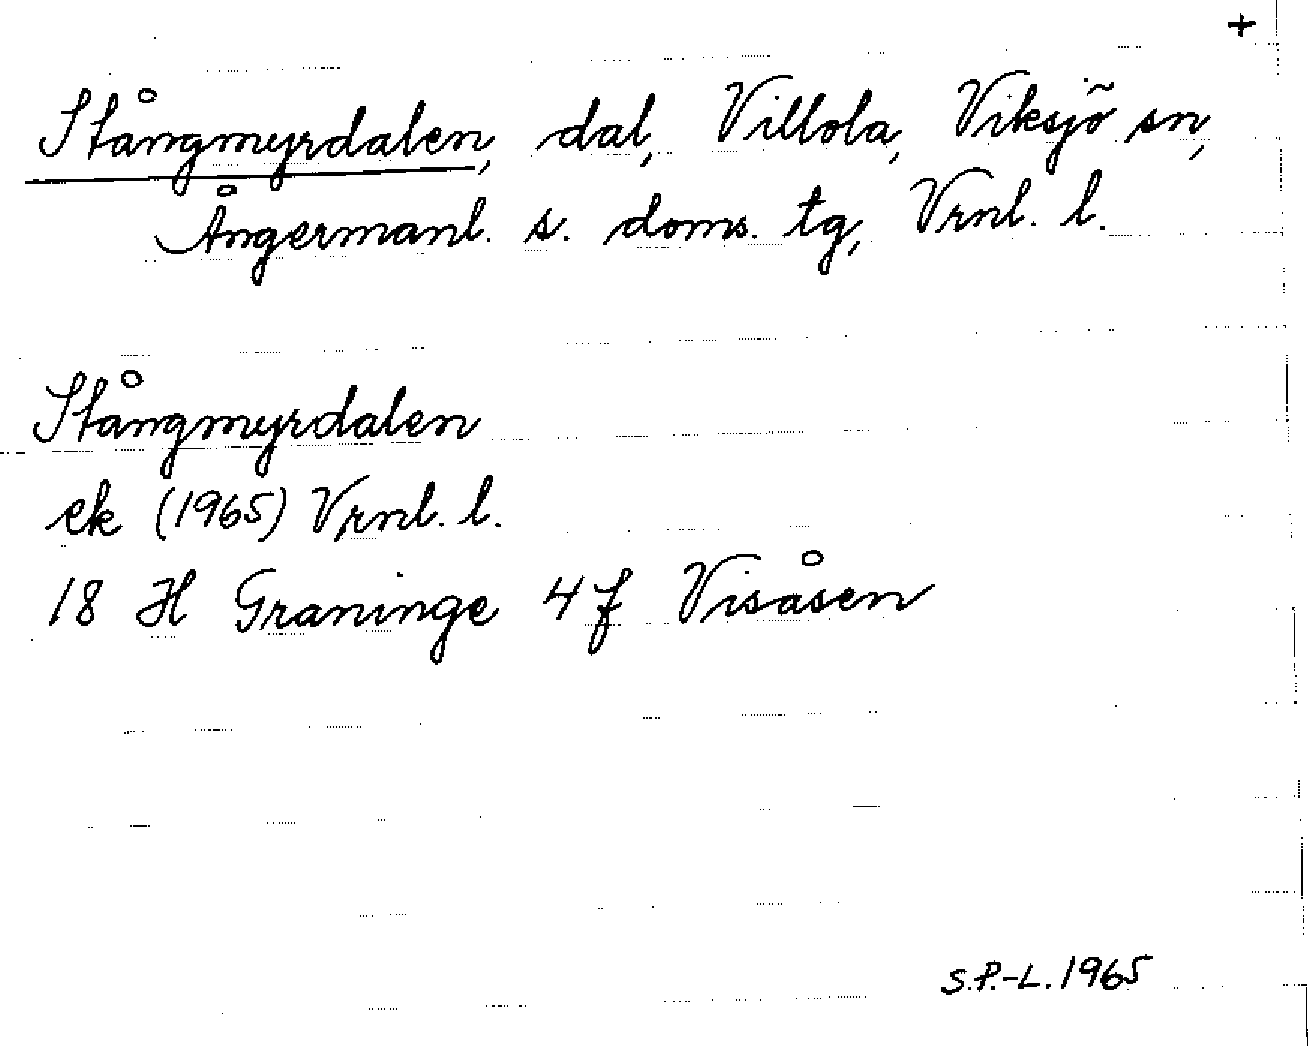 +
Stångmyrdalen, dal, Villola, Viksjö sn,
Ångermanl. s. doms. tg, Vrnl. l.
Stångmyrdalen
ek (1965) Vrnl. l.
18 H Graninge 4f Visåsen
S.P.-L. 1965